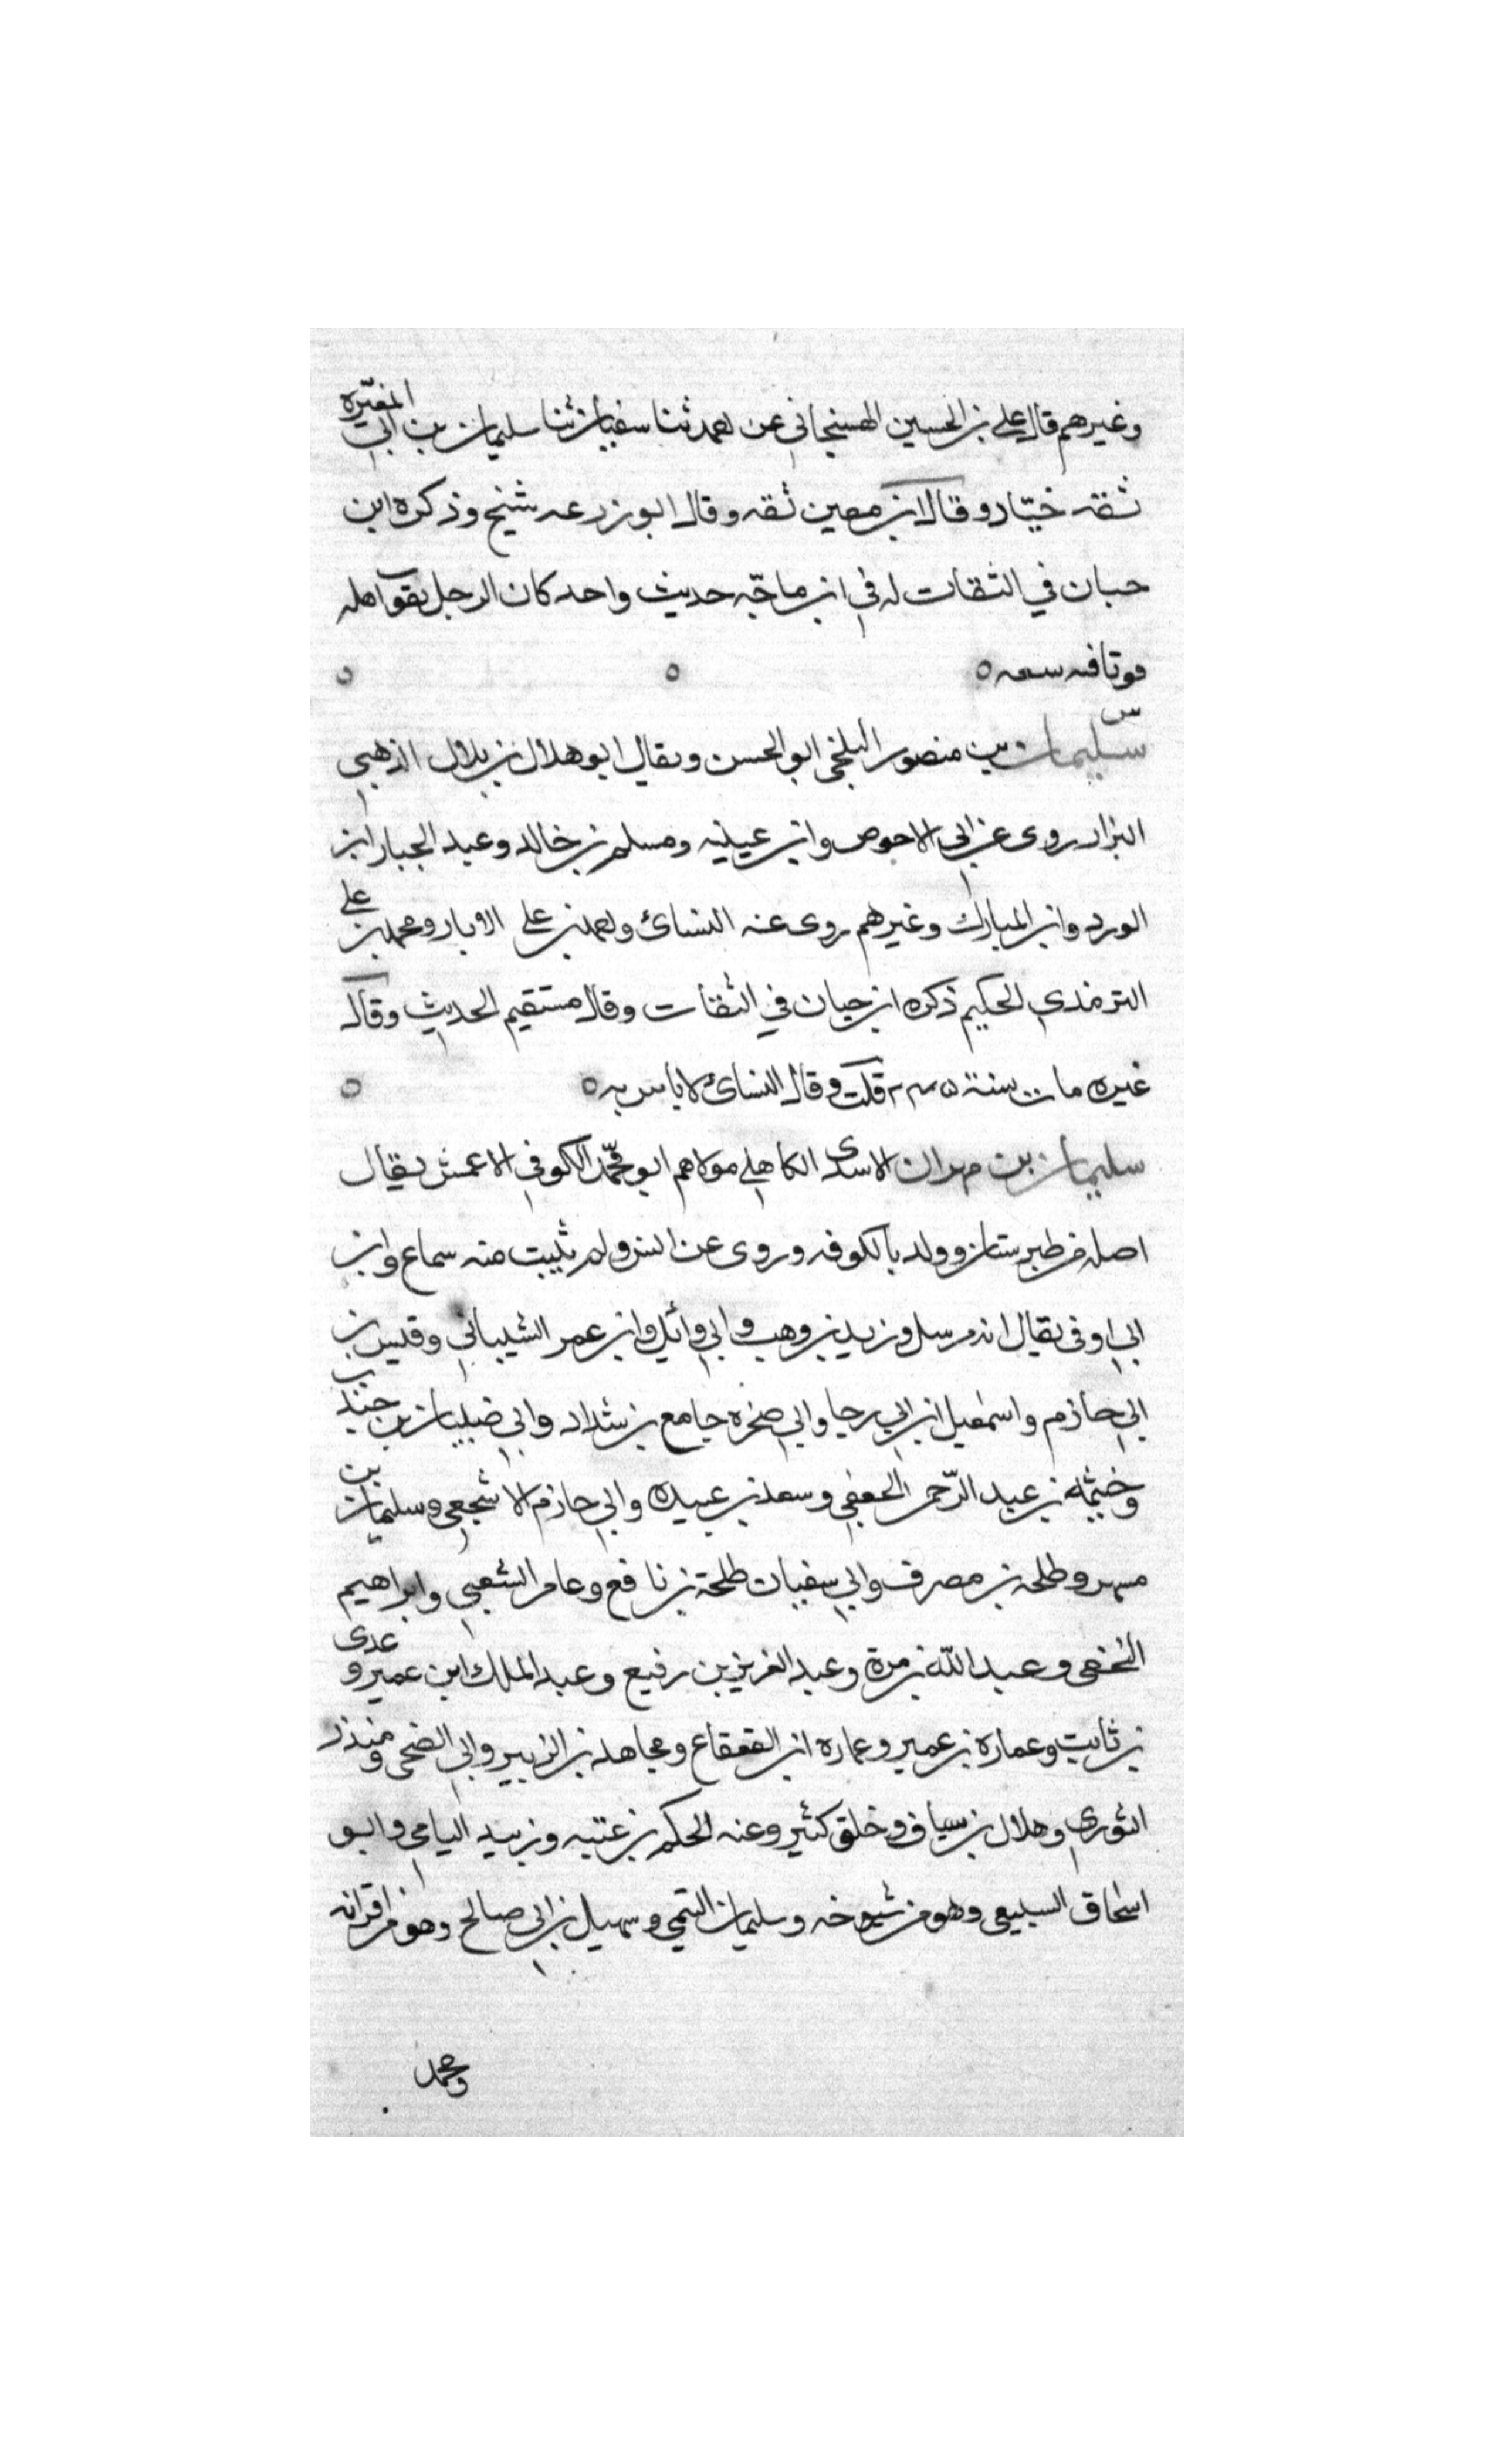 وغيرهم قال علي بن الحسين الهسنجاني عن احمد ثنا سفيان ثنا سليمان بن ابي المغيره
ثقه خيار وقال ابن معين ثقه وقال ابو زرعه شيخ وذكره ابن
حبان في الثقات له في ابن ماجه حديث واحد كان الرجل يقوت اهله
قوتا فيه سعه ٥ ٥ ٥
س
سليمان بن منصور البلخي ابو الحسن ويقال ابو هلال بن بلال الذهبي
البزار روى عن ابي الاحوص وابن عيينه ومسلم بن خالد وعبد الجبار ابن
الورد وابن المبارك وغيرهم روى عنه النسائ واحمد بن علي الابار ومحمد بن علي
الترمذي الحكيم ذكره ابن حبان في الثقات وقال مستقيم الحديث وقال
غيره مات سنة قلت وقال النسائ لا باس به ٥ ٥
سليمان بن مهران الاسدى الكاهلي مولاهم ابو محمد الكوفي الاعمش يقال
اصله من طبرستان وولد بالكوفه وروى عن انس ولم يثبت منه سماع وابن
ابي اوفى يقال انه مرسل وزيد بن وهب وابي وائل وابن عمر الشيباني وقيس بن
ابي حازم واسمعيل ابن ابي رجا وابي صخره جامع بن شداد وابي ضبيان بن جندب
وخيثمه بن عبد الرحمن الجعفي وسعد بن عبيده وابي حازم الاشجعي وسليمان بن
مسهر وطلحه بن مصرف وابي سفيان طلحة بن نافع وعامر الشعبي وابراهيم
النخعى وعبد الله بن مرة وعبد العزيز بن رفيع وعبد الملك ابن عمير وعدى
بن ثابت وعماره بن عمير وعماره ابن القعقاع ومجاهد بن الزبير وابي الضحى ومنذر
الثوري وهلال بن سياف وخلق كثير وعنه الحكم بن عتيبه وزبيد اليامي وابو
اسحاق السبيعي وهو من شيوخه وسليمان التيمي وسهيل بن ابي صالح وهو من اقرانه
ومحمد